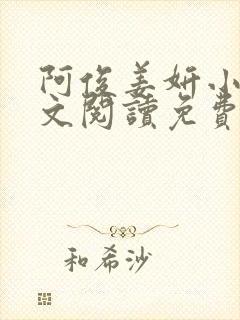 阿俊姜妍小
文閱讀免費
和希沙